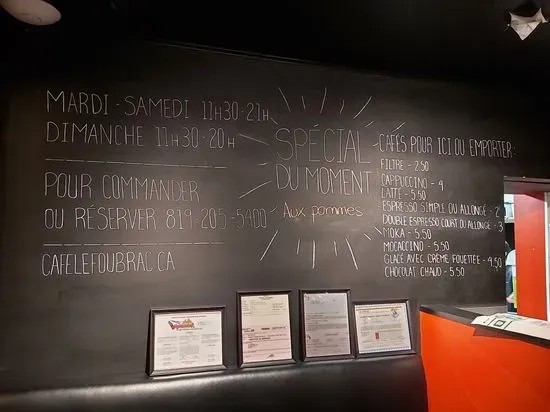 MARDI - SAMEDI 11H30-21H
DIMANCHE 11H30-20H
POUR COMMANDER
OU RÉSERVER 819-205-5400
CAFELEFOUBRAC.CA
SPÉCIAL
DU MOMENT
Aux pommes
CAFÉS POUR ICI OU EMPORTER:
FILTRE - 2.50
CAPPUCCINO - 4
LATTÉ - 5.50
ESPRESSO SIMPLE OU ALLONGÉ - 2
DOUBLE ESPRESSO COURT OU ALLONGÉ - 3
MOKA - 5.50
MOCACCINO - 5.50
GLACÉ AVEC CRÈME FOUETTÉE - 4.50
CHOCOLAT CHAUD - 5.50